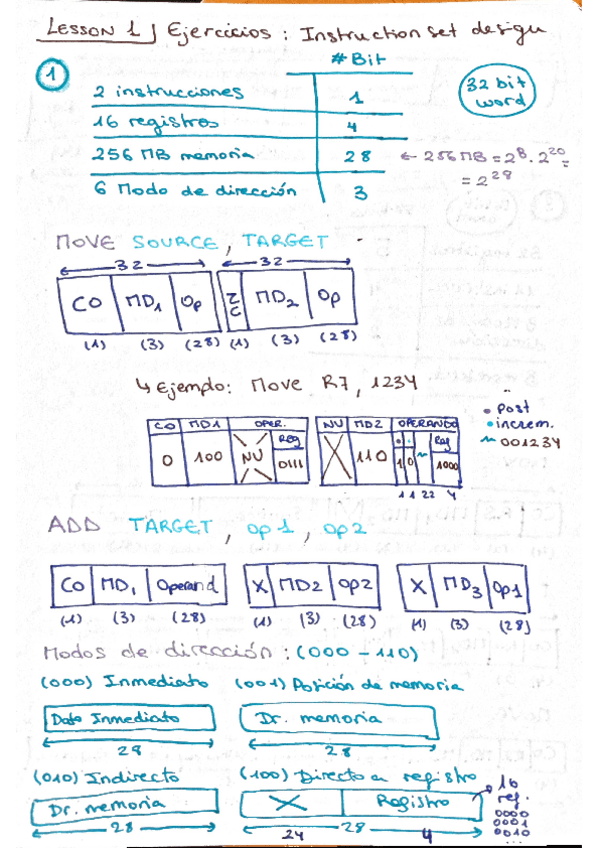 LESSON 1 Ejercicios : Instruction set design
# Bit
1
2 instrucciones 1
32 bit word
16 registros 4
256 MB memoria 28 ← 256 MB = 2^8 . 2^20 =
= 2^28
6 Modo de dirección 3
MOVE SOURCE, TARGET
32 32
CO MD1 Op NC MD2 Op
(1) (3) (28) (1) (3) (28)
↳ Ejemplo: Move R7, 1234
• Post
• increm.
~ 001234
CO MD1 OPER. NU MD2 OPERANDO
0 100 NU Reg 0111 X 110 • • ~ Reg
1 0 1000
1 1 22 4
ADD TARGET, op1, op2
CO MD1 Operand X MD2 OP2 X MD3 Op1
(1) (3) (28) (1) (3) (28) (1) (3) (28)
Modos de dirección : (000 - 110)
(000) Inmediato (001) Posición de memoria
Dato Inmediato Dr. memoria
28 28
(010) Indirecto (100) Directo a registro
Dr. memoria X Registro
28 24 28 4
16 reg.
0000
0001
0010
...